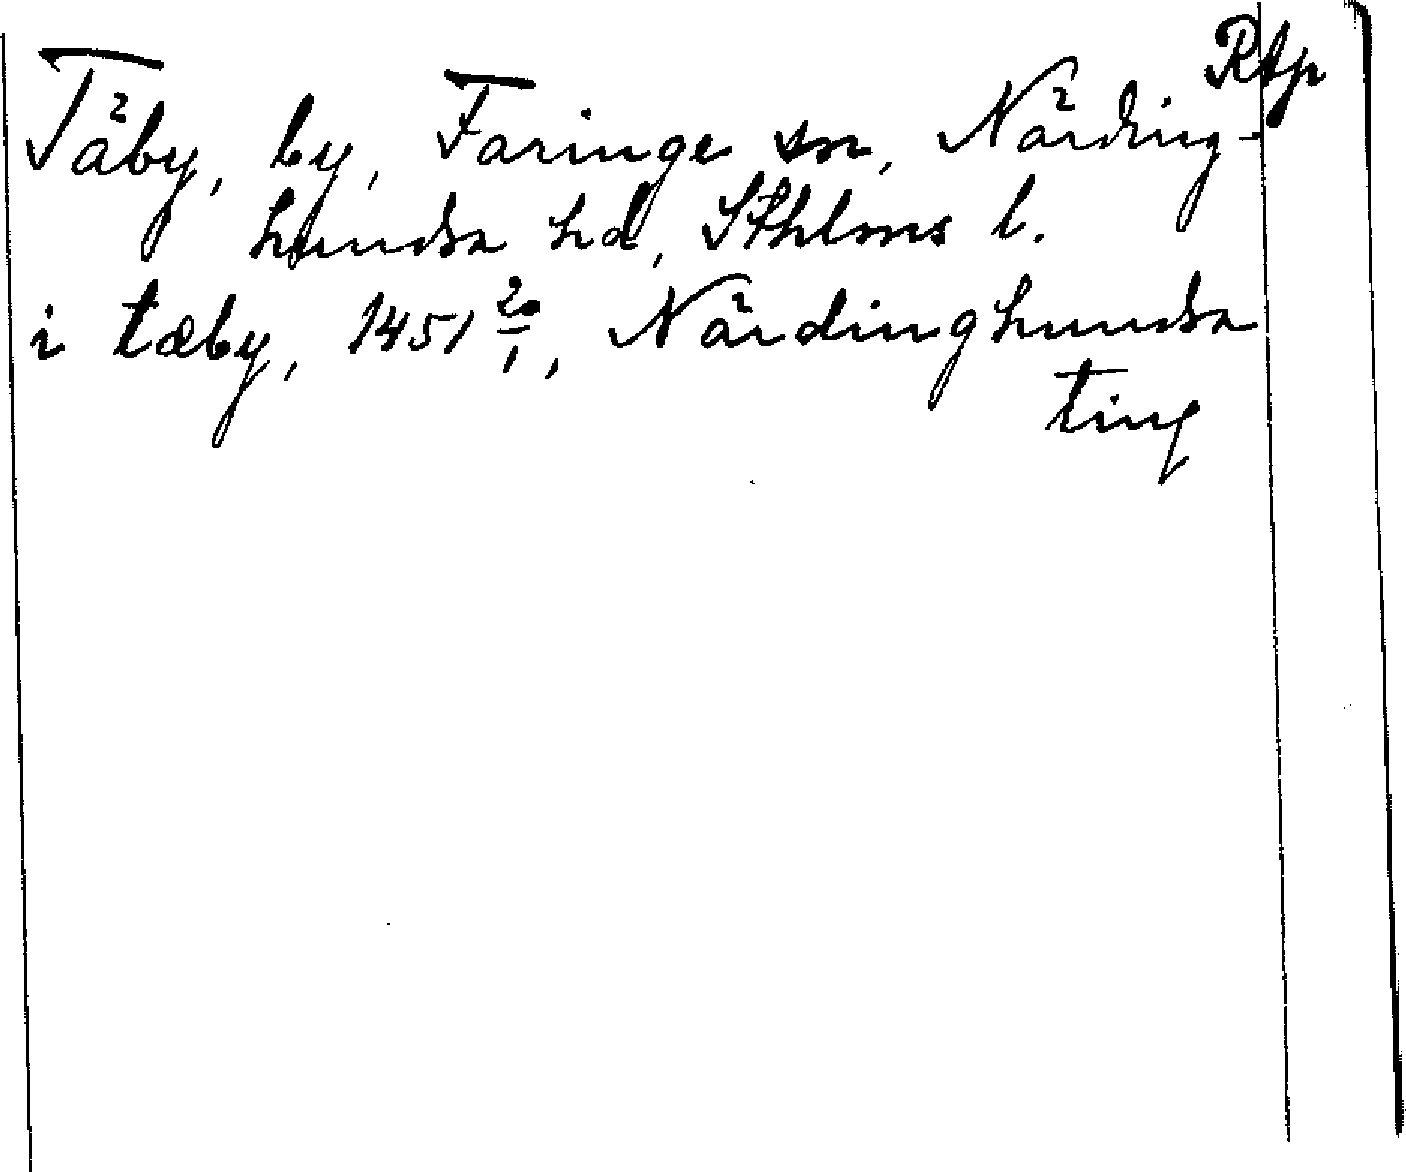 Rtp
Täby, by, Faringe sn, Närding-
hundra hd, Sthlms l.
i tæby, 1451 20/1, Närdinghundra
ting